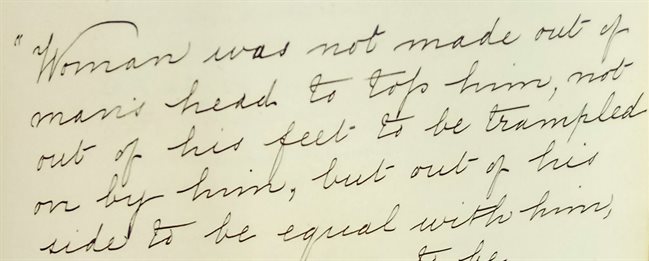 "Woman was not made out of
man's head to top him, not
out of his feet to be trampled
on by him, but out of his
side to be equal with him,
to be